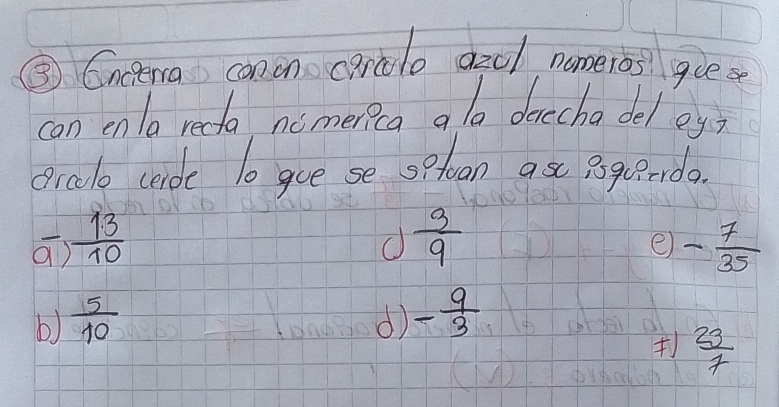 ③ Encierra con un círculo azul números que se
can en la recta númerica a la derecha del ey y
círculo verde lo que se sitúan a su isquierda.
a) -13/10 c) 3/9 e) -7/35
b) 5/10 d) -9/3 f) 23/7